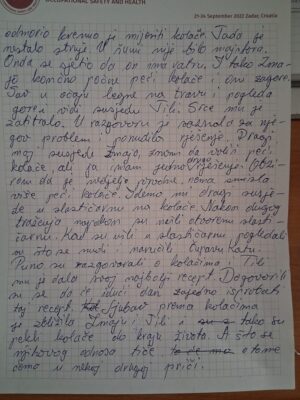 OCCUPATIONAL SAFETY AND HEALTH
21-24 September 2022 Zadar, Croatia
odmorio krenuo je mijesiti kolače. Tada je
nestalo struje. U šumi nije bilo majstora.
Onda se sjetio da on ima vatru. I tako Zma-
je konačno počne peći kolače i oni zagore.
Zmaj u očaju legne na travu i pogleda
gore i vidi susjedu Tili. Srce mu je
zatitralo. U razgovoru je saznala za nje-
gov problem i ponudila rješenje. Dragi
moj susjede Zmaju, znam da voliš peći
kolače, ali ja imam jedno drugo rješenje. Obzi-
rom da je nedjelja popodne, nema smisla
više peći kolače. Idemo mi dragi susje-
de u slastičarnu na kolače. Nakon dugog
traženja napokon su našli otvorenu slast-
ičarnu. Kad su ušli u slastičarnu pogledali
su što se nudi i naručili čupavu katu.
Puno su razgovarali o kolačima i Tili
mu je dala svoj najbolji recept. Dogovorili
su se da će idući dan zajedno isprobati
taj recept. Ljubav prema kolačima
je zbližila Zmaju i Tili i tako su
pekli kolače do kraja života. A što se
njihovog odnosa tiče o tome
ćemo u nekoj drugoj priči.